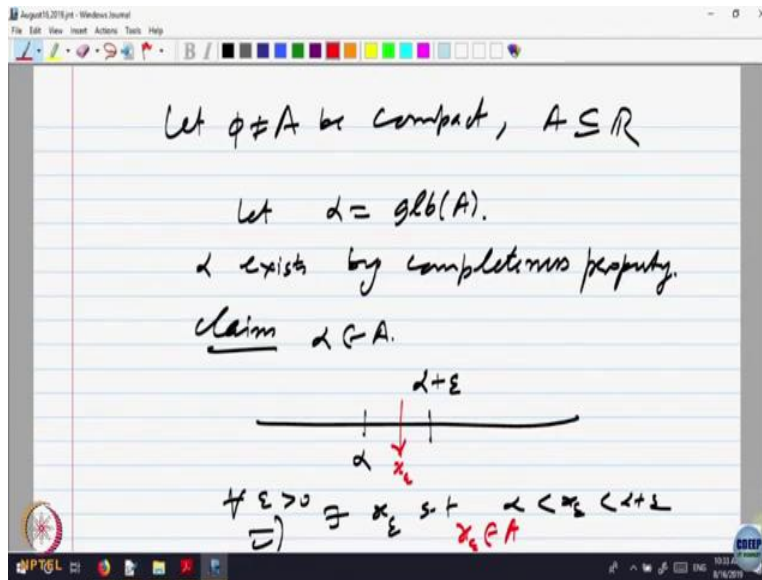 August16,2019.jnt - Windows Journal
File Edit View Insert Actions Tools Help
B I
Let ϕ≠A be compact, A ⊆ ℝ
Let α = glb(A).
α exists by completeness property.
Claim α ∈ A.
α+ε
α x_ε
∀ ε > 0 ∃ x_ε s.t α < x_ε < α+ε
⇒) x_ε ∈ A
NPTEL
CDEEP
ENG
8/16/2019